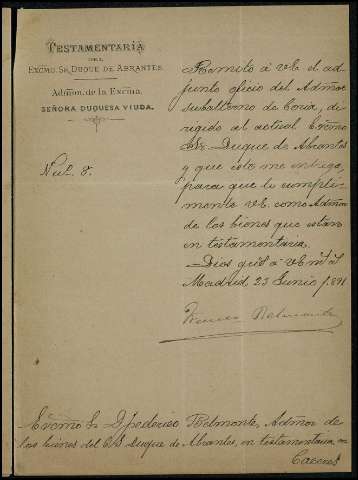 TESTAMENTARÍA
DEL
EXCMO. SR. DUQUE DE ABRANTES.
Admon. de la Excma.
SEÑORA DUQUESA VIUDA.
Núm. 8.
Remito á V.E. el ad-
junto oficio del Admor
subalterno de Coria, di-
rigido al actual Excmo
Sr. Duque de Abrantes
y que éste me entrega,
para que le cumpli-
mente V.E. como Admor
de los bienes que están
en testamentaria.
Dios gue á V.E. m. a.
Madrid, 23 Junio 1891
Belmonte
Excmo Sr. D. Federico Belmonte, Admor de
los bienes del E.S. Duque de Abrantes, en testamentaria en
Caceres